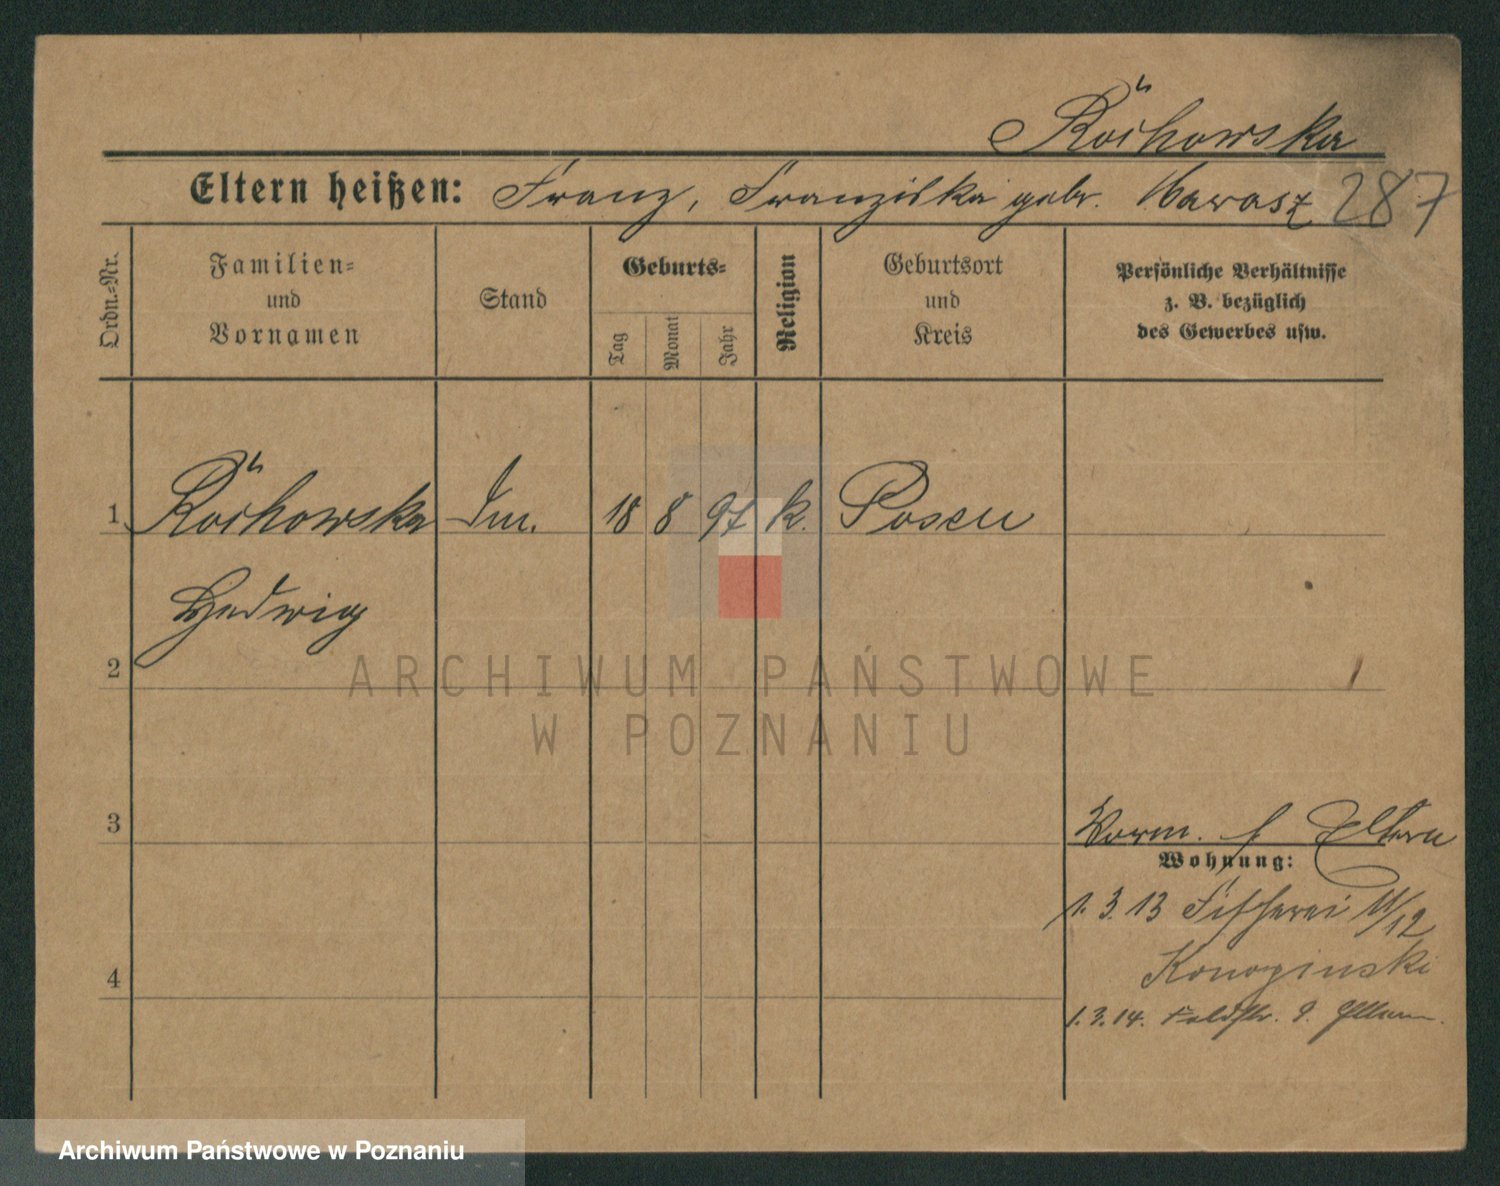 Röchowska
Eltern heißen: Franz, Franziska geb. Nawasz 287
Ordn.-Nr.
Familien- und Vornamen
Stand
Geburts-
Tag
Monat
Jahr
Religion
Geburtsort und Kreis
Persönliche Verhältnisse
z. B. bezüglich
des Gewerbes usw.
1 Röchowska 18 8 97 k. Posen
Hedwig
2
ARCHIWUM PAŃSTWOWE
W POZNANIU
3
Vorm. f. Eltern
Wohnung:
1. 3. 13 Fischerei 11/12
4
1. 3. 14. Feldstr. 9.
Archiwum Państwowe w Poznaniu